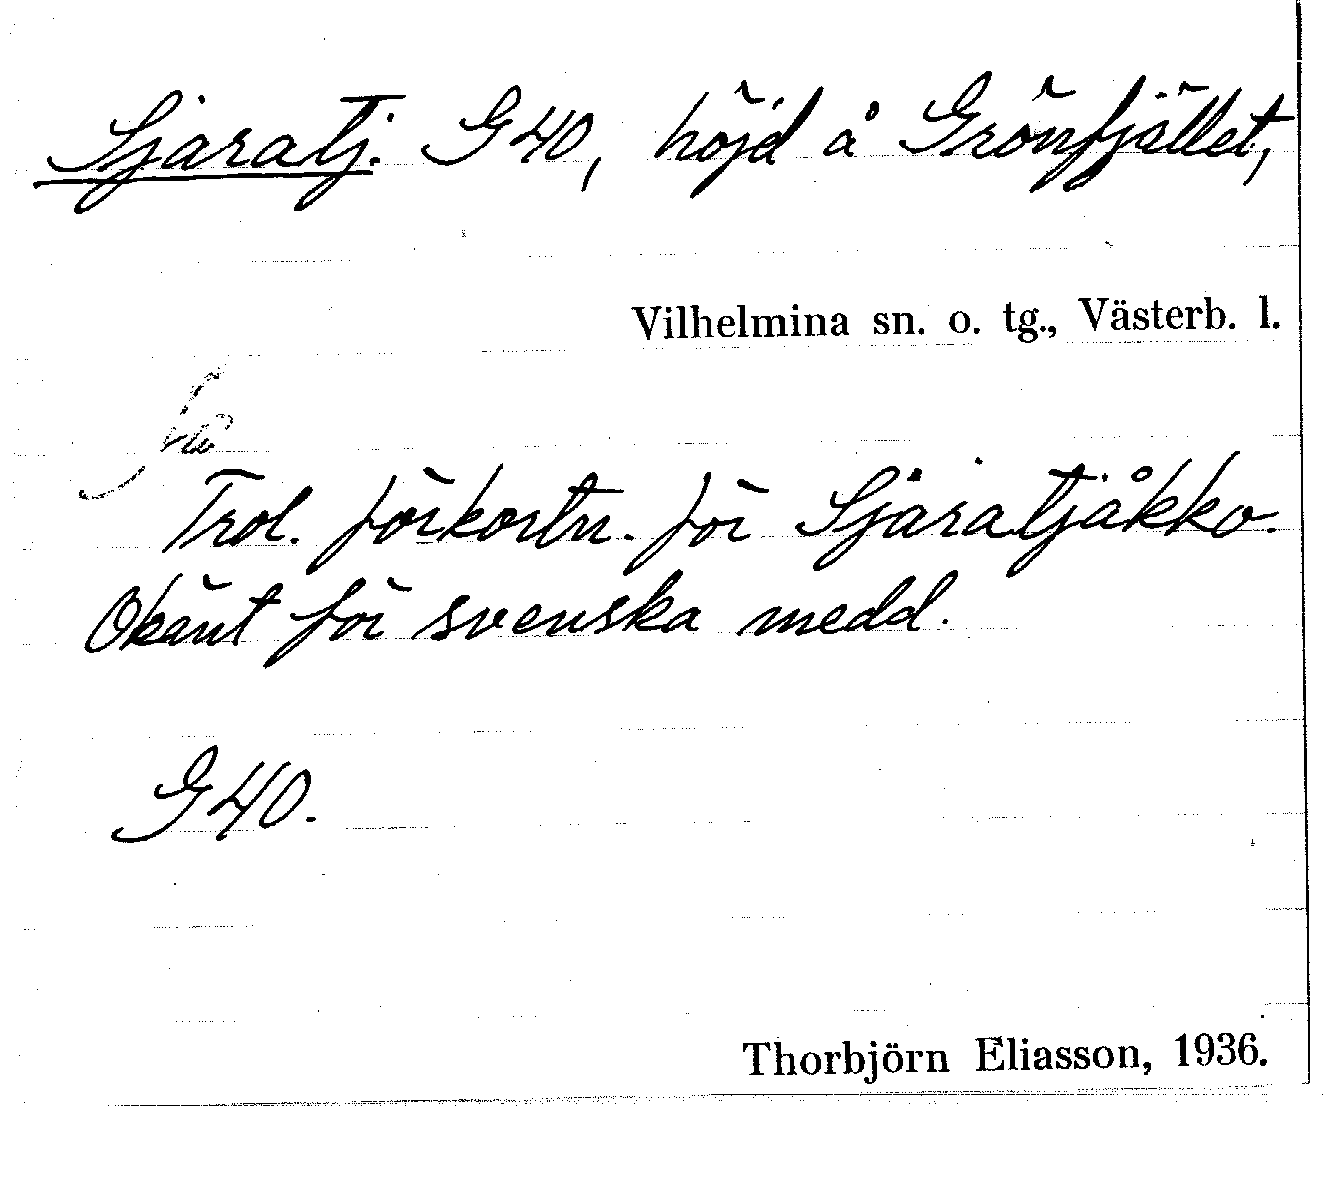 Sjaratj. G40, höjd å Grönfjället,
Vilhelmina sn. o. tg., Västerb. l.
Trol. förkortn. för Sjaratjåkko.
Okänt för svenska medd.
G40.
Thorbjörn Eliasson, 1936.